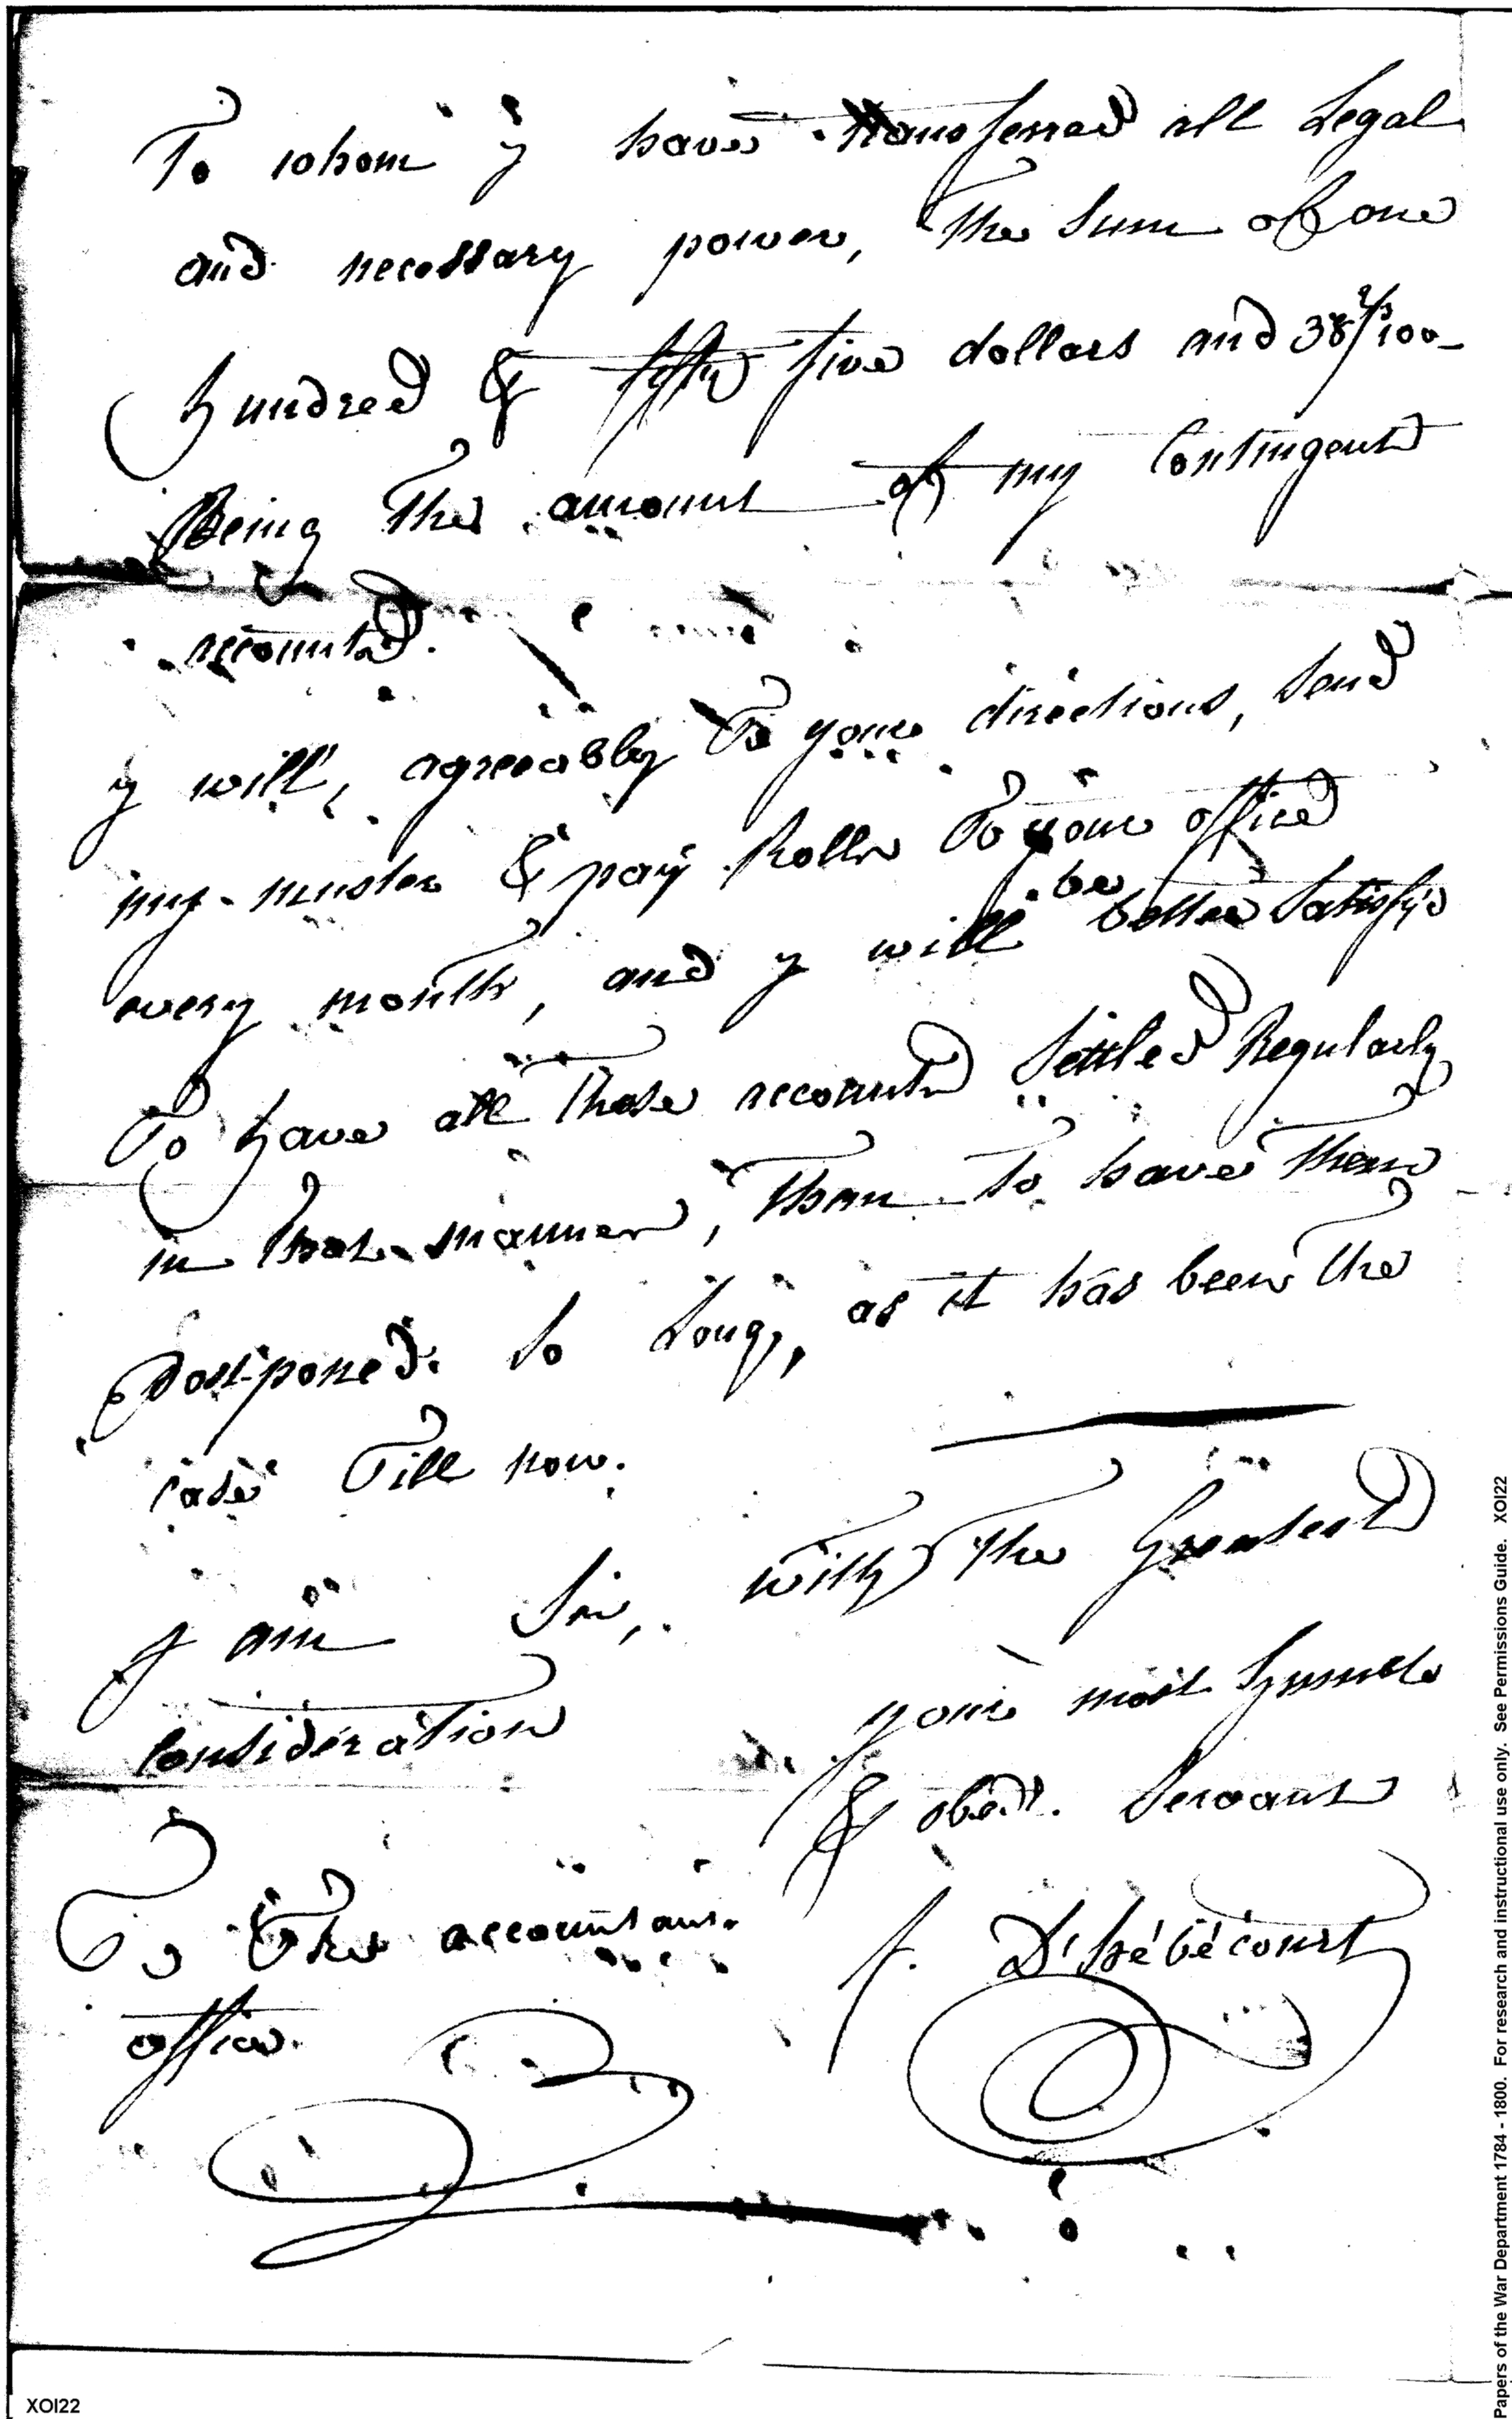 To whom y have transferred all Legal
and necessary power, the Sum of one
hundred & fifty five dollars and 38 2/3/100
Being The amount of my Contingent
accounts.
y will, agreeably To your directions, Send
my muster & pay Rolls To your office
every month, and y will be better Satisfy'd
To have all Those accounts Settled Regularly
in that manner, Than To have Them
postponed So Long, as it has been The
case Till now.
y am Sir, with The Greatest
consideration
your most humble
& obedt. Servant
f. D'hébécourt
To The accountant
office.
Papers of the War Department 1784 - 1800. For research and instructional use only. See Permissions Guide. XOI22
XOI22